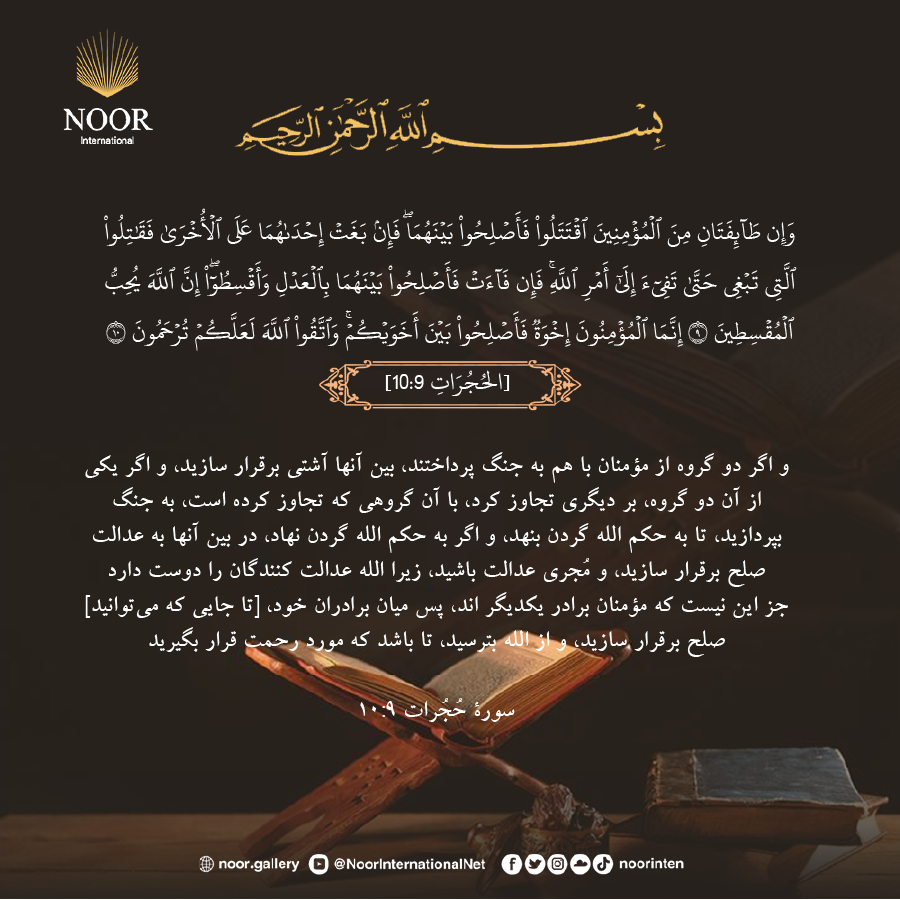 NOOR
International
بِسْمِ ٱللَّهِ ٱلرَّحْمَٰنِ ٱلرَّحِيمِ
وَإِن طَآئِفَتَانِ مِنَ ٱلْمُؤْمِنِينَ ٱقْتَتَلُوا۟ فَأَصْلِحُوا۟ بَيْنَهُمَا ۖ فَإِنۢ بَغَتْ إِحْدَىٰهُمَا عَلَى ٱلْأُخْرَىٰ فَقَٰتِلُوا۟
ٱلَّتِى تَبْغِى حَتَّىٰ تَفِىٓءَ إِلَىٰٓ أَمْرِ ٱللَّهِ ۚ فَإِن فَآءَتْ فَأَصْلِحُوا۟ بَيْنَهُمَا بِٱلْعَدْلِ وَأَقْسِطُوٓا۟ ۖ إِنَّ ٱللَّهَ يُحِبُّ
ٱلْمُقْسِطِينَ ٩ إِنَّمَا ٱلْمُؤْمِنُونَ إِخْوَةٌ فَأَصْلِحُوا۟ بَيْنَ أَخَوَيْكُمْ ۚ وَٱتَّقُوا۟ ٱللَّهَ لَعَلَّكُمْ تُرْحَمُونَ ١٠
[الحُجُرَاتِ 10:9]
و اگر دو گروه از مؤمنان با هم به جنگ پرداختند، بین آنها آشتی برقرار سازید، و اگر یکی
از آن دو گروه، بر دیگری تجاوز کرد، با آن گروهی که تجاوز کرده است، به جنگ
بپردازید، تا به حکم الله گردن بنهد، و اگر به حکم الله گردن نهاد، در بین آنها به عدالت
صلح برقرار سازید، و مُجری عدالت باشید، زیرا الله عدالت کنندگان را دوست دارد
جز این نیست که مؤمنان برادر یکدیگر اند، پس میان برادران خود، [تا جایی که می‌توانید]
صلح برقرار سازید، و از الله بترسید، تا باشد که مورد رحمت قرار بگیرید
سورهٔ حُجُرات ۱۰:۹
noor.gallery @NoorInternationalNet noorinten